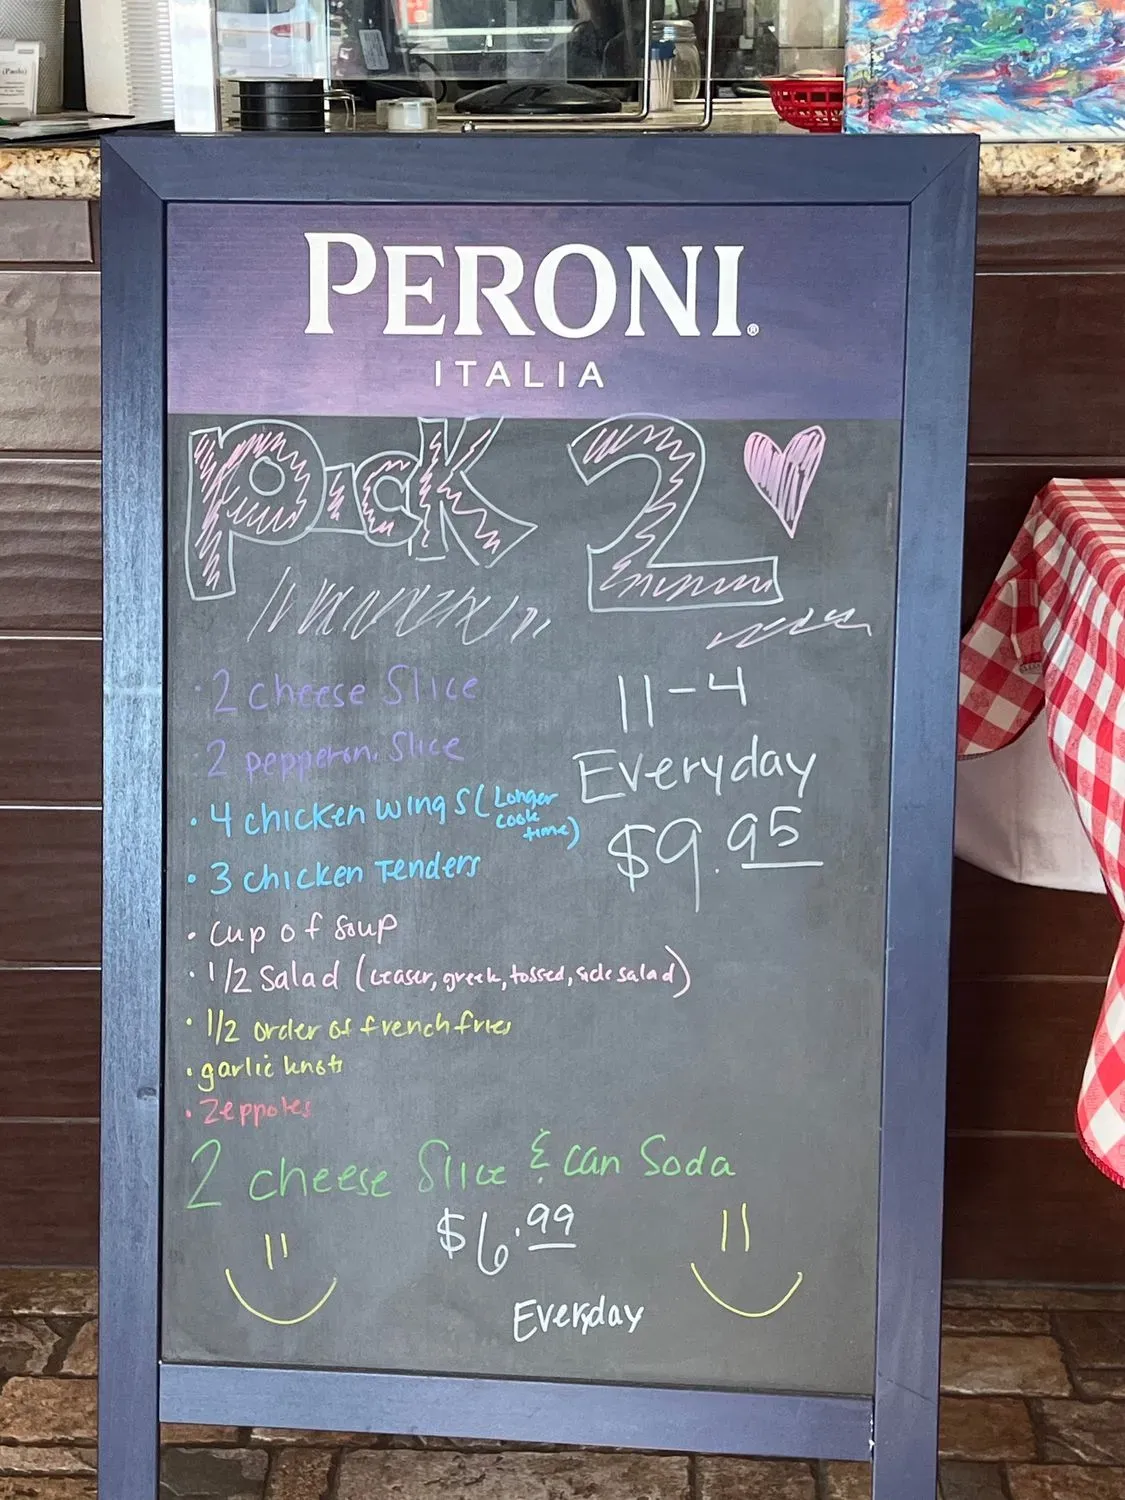 (Paolo)
PERONI®
ITALIA
Pick 2
· 2 cheese Slice
· 2 pepperoni Slice
· 4 chicken wings (Longer cook time)
· 3 chicken Tenders
· Cup of Soup
· 1/2 Salad (ceaser, greek, tossed, side salad)
· 1/2 order of french fries
· garlic knots
· Zeppoles
11-4
Everyday
$9.95
2 cheese Slice & can Soda
$6.99
Everyday